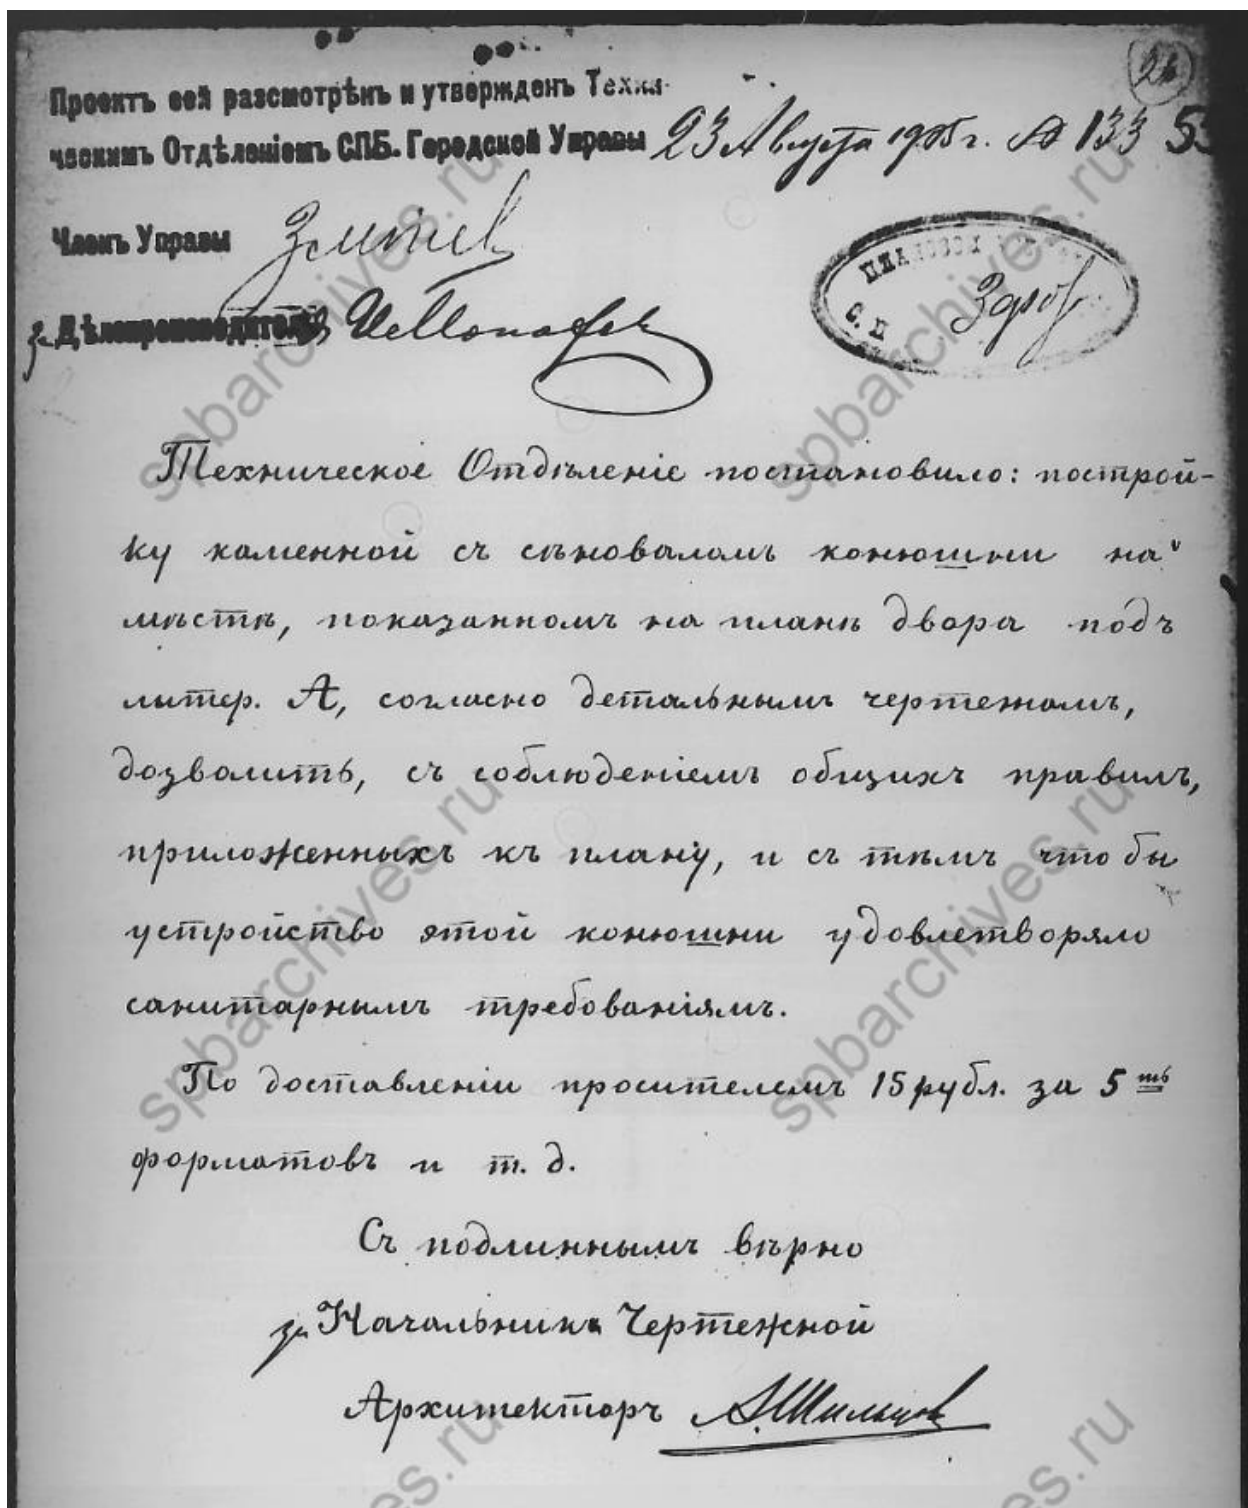 26
Проектъ сей разсмотрѣнъ и утвержденъ Техни-
ческимъ Отдѣленіемъ СПБ. Городской Управы 23 Августа 1905 г. № 133 53
Членъ Управы
за Дѣлопроизводителя
ПЛАНОВОЙ
С. П
Техническое Отдѣленіе постановило: построй-
ку каменной съ сѣноваломъ конюшни на
мѣстѣ, показанномъ на планѣ двора подъ
литер. А, согласно детальнымъ чертежамъ,
дозволить, съ соблюденіемъ общихъ правилъ,
приложенныхъ къ плану, и съ тѣмъ что бы
устройство этой конюшни удовлетворяло
санитарнымъ требованіямъ.
По доставленіи просителемъ 15 рубл. за 5ть
форматовъ и т. д.
Съ подлиннымъ вѣрно
за Начальника Чертежной
Архитекторъ
spbarchives.ru
spbarchives.ru
spbarchives.ru
spbarchives.ru
es.ru
es.ru